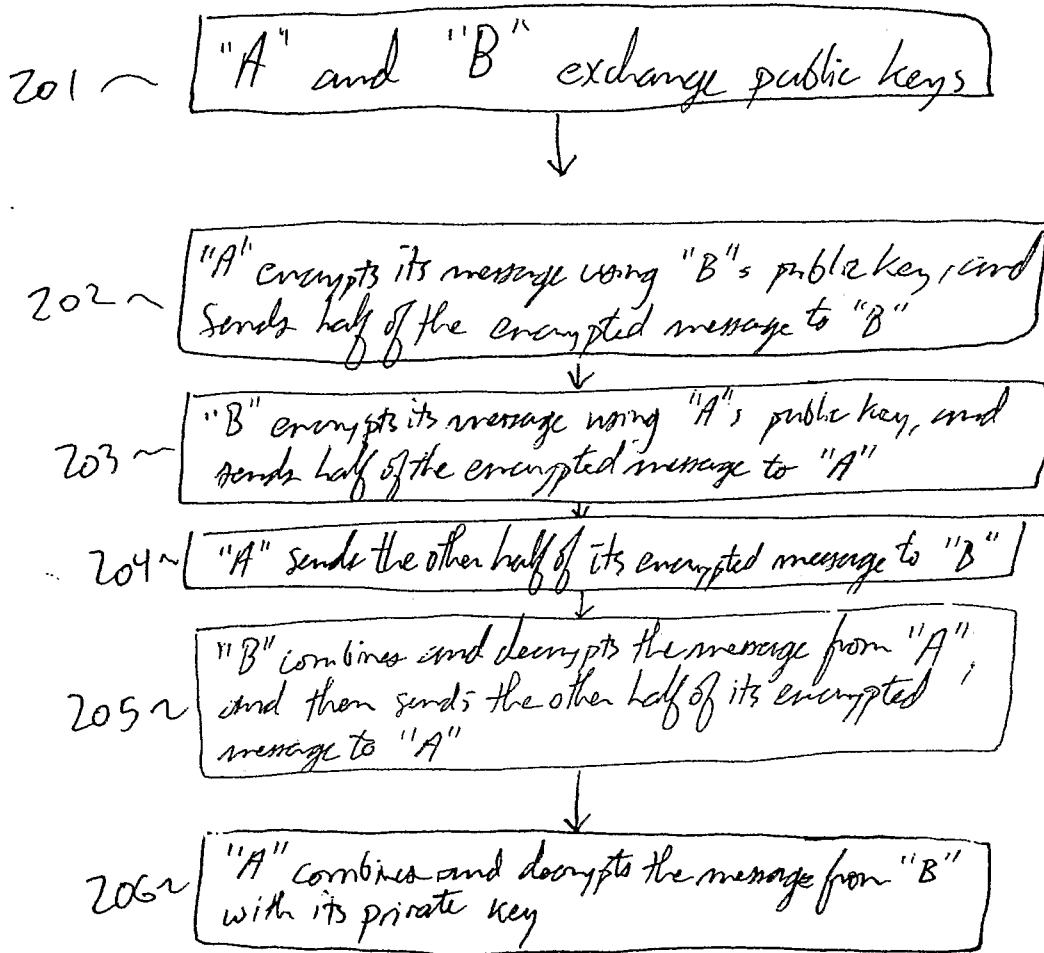 201 ~ "A" and "B" exchange public keys
"A" encrypts its message using "B"s public key, and
202 ~ sends half of the encrypted message to "B"
"B" encrypts its message using "A"s public key, and
203 ~ sends half of the encrypted message to "A"
204 ~ "A" sends the other half of its encrypted message to "B"
"B" combines and decrypts the message from "A",
205 ~ and then sends the other half of its encrypted
message to "A"
206 ~ "A" combines and decrypts the message from "B"
with its private key